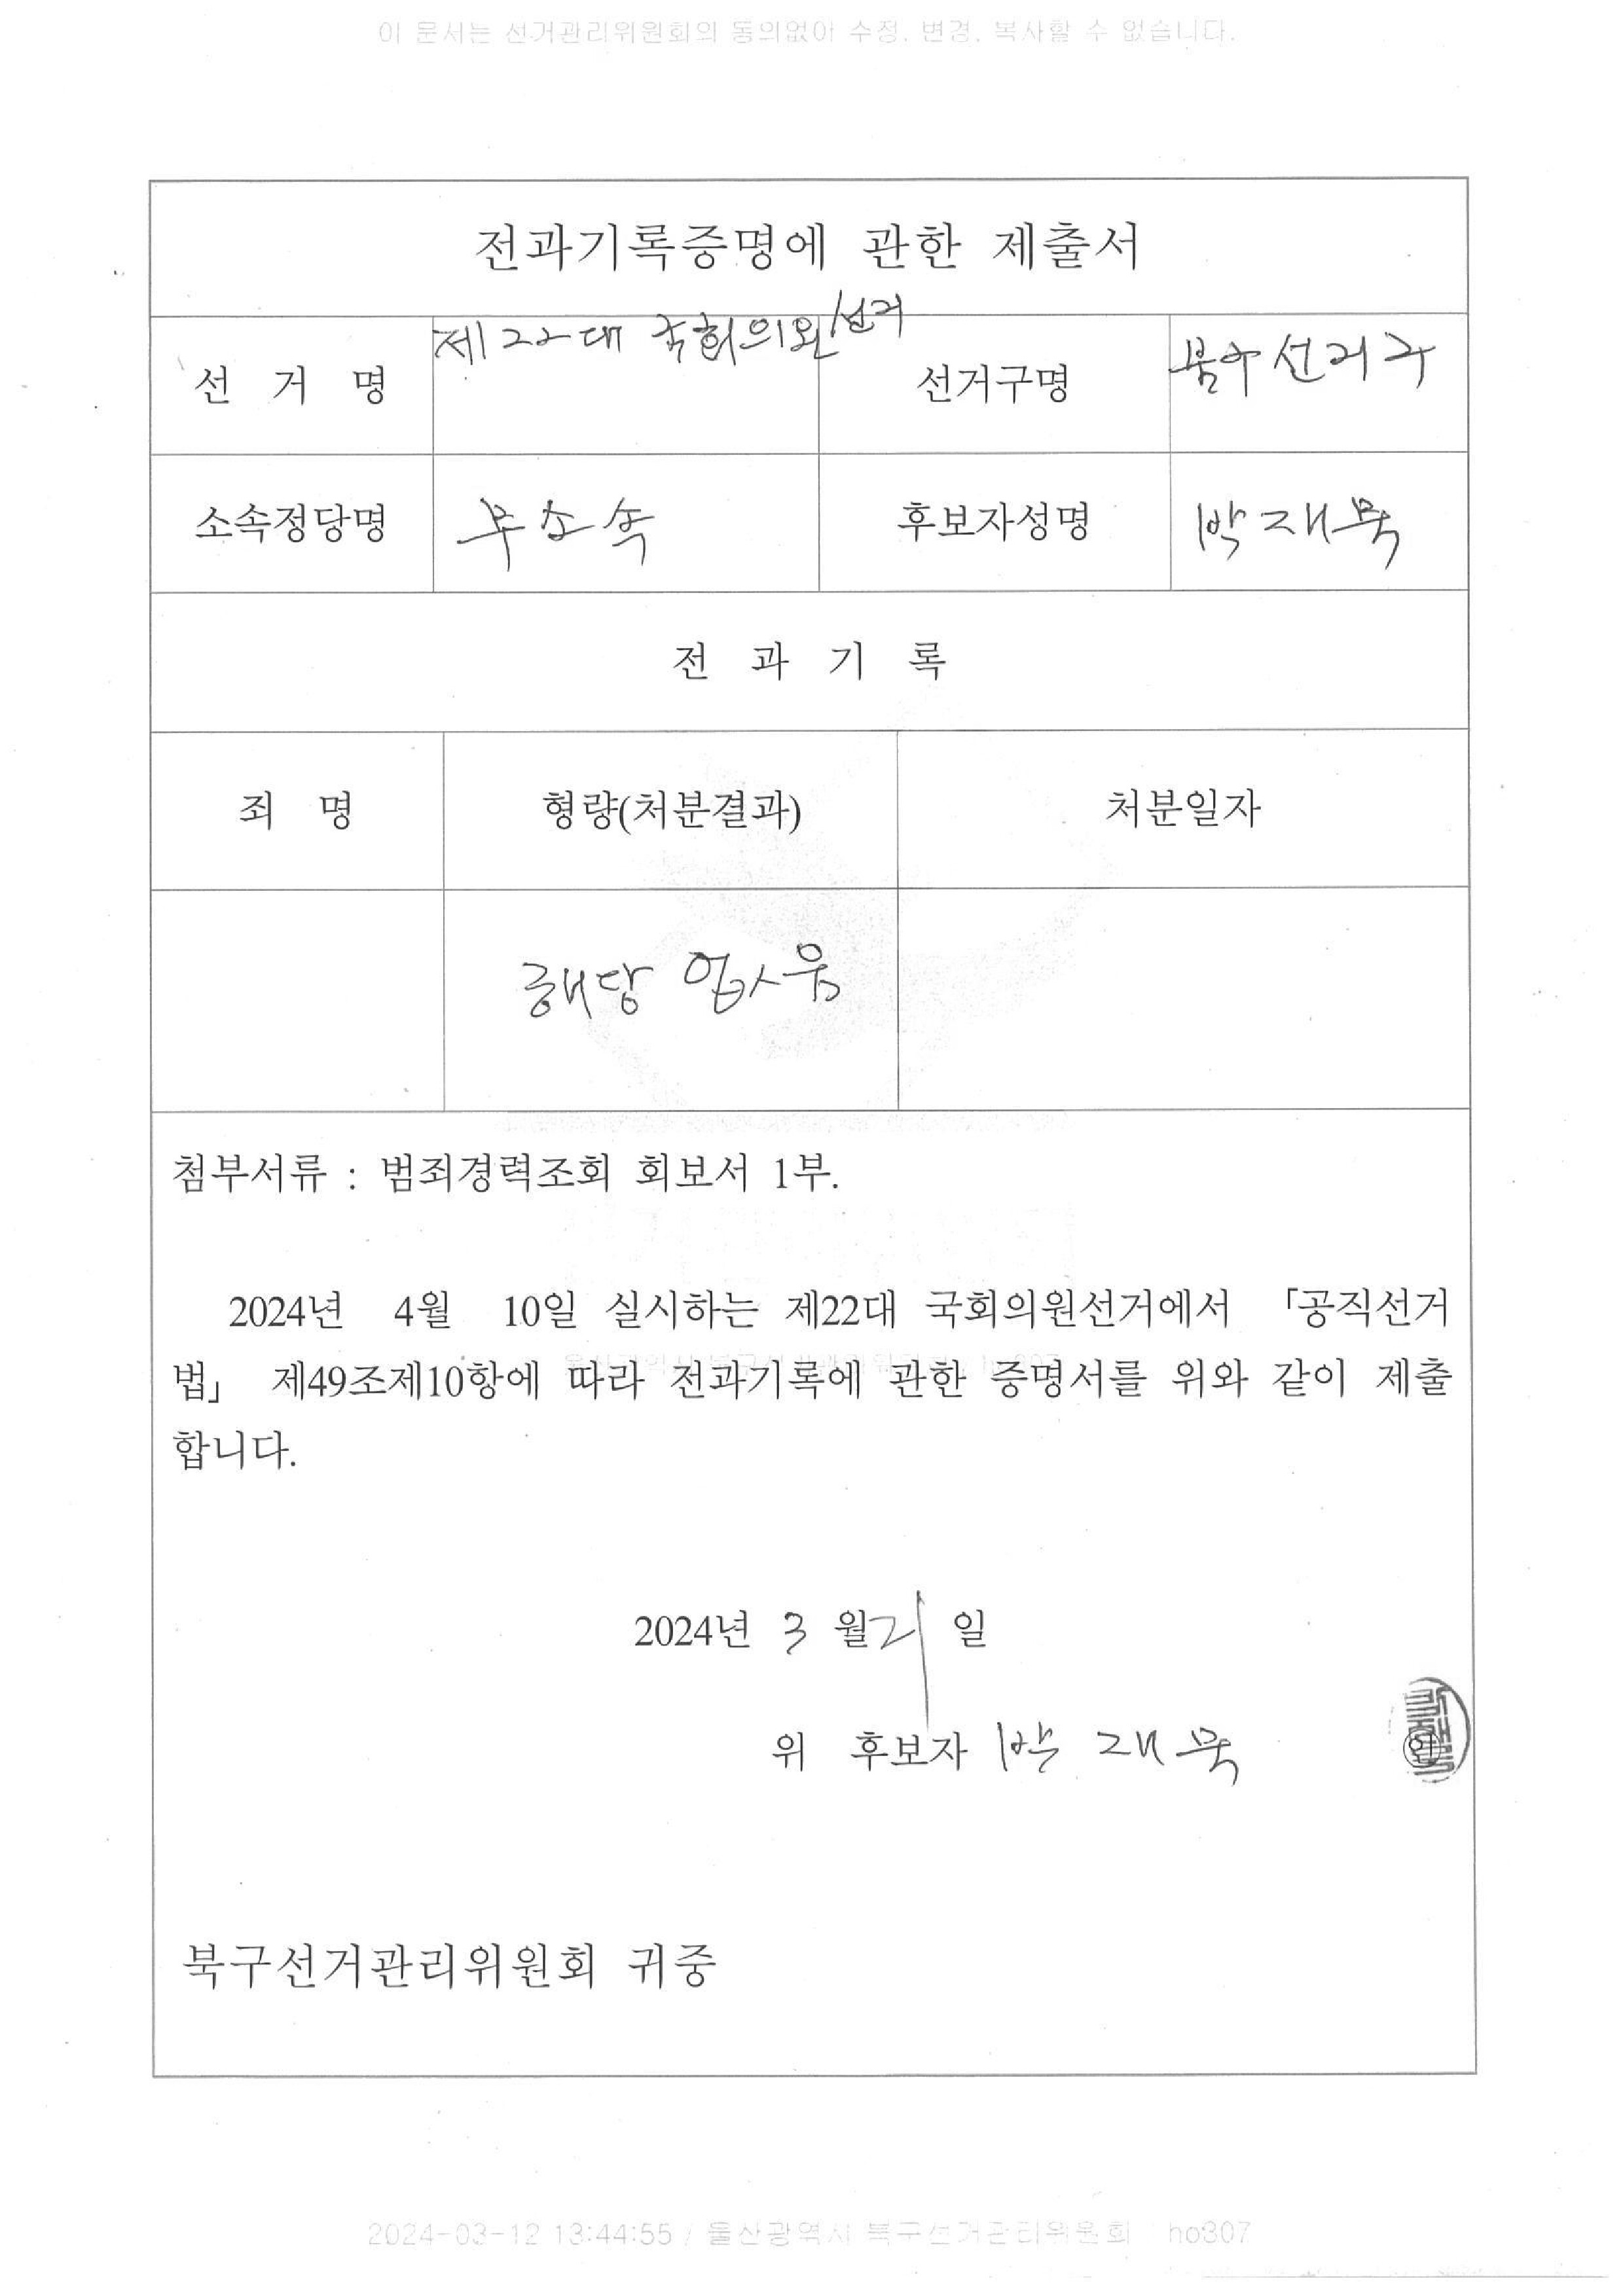 이 문서는 선거관리위원회의 동의없이 수정, 변경, 복사할 수 없습니다.
전과기록증명에 관한 제출서
선 거 명 제22대 국회의원선거 선거구명 북구선거구
소속정당명 무소속 후보자성명 박재묵
전 과 기 록
죄 명 형량(처분결과) 처분일자
해당 없음
첨부서류 : 범죄경력조회 회보서 1부.
2024년 4월 10일 실시하는 제22대 국회의원선거에서 「공직선거
법」 제49조제10항에 따라 전과기록에 관한 증명서를 위와 같이 제출
합니다.
2024년 3 월 21 일
위 후보자 박 재 묵 ㊞
북구선거관리위원회 귀중
2024-03-12 13:44:55 / 울산광역시 북구선거관리위원회 ho307